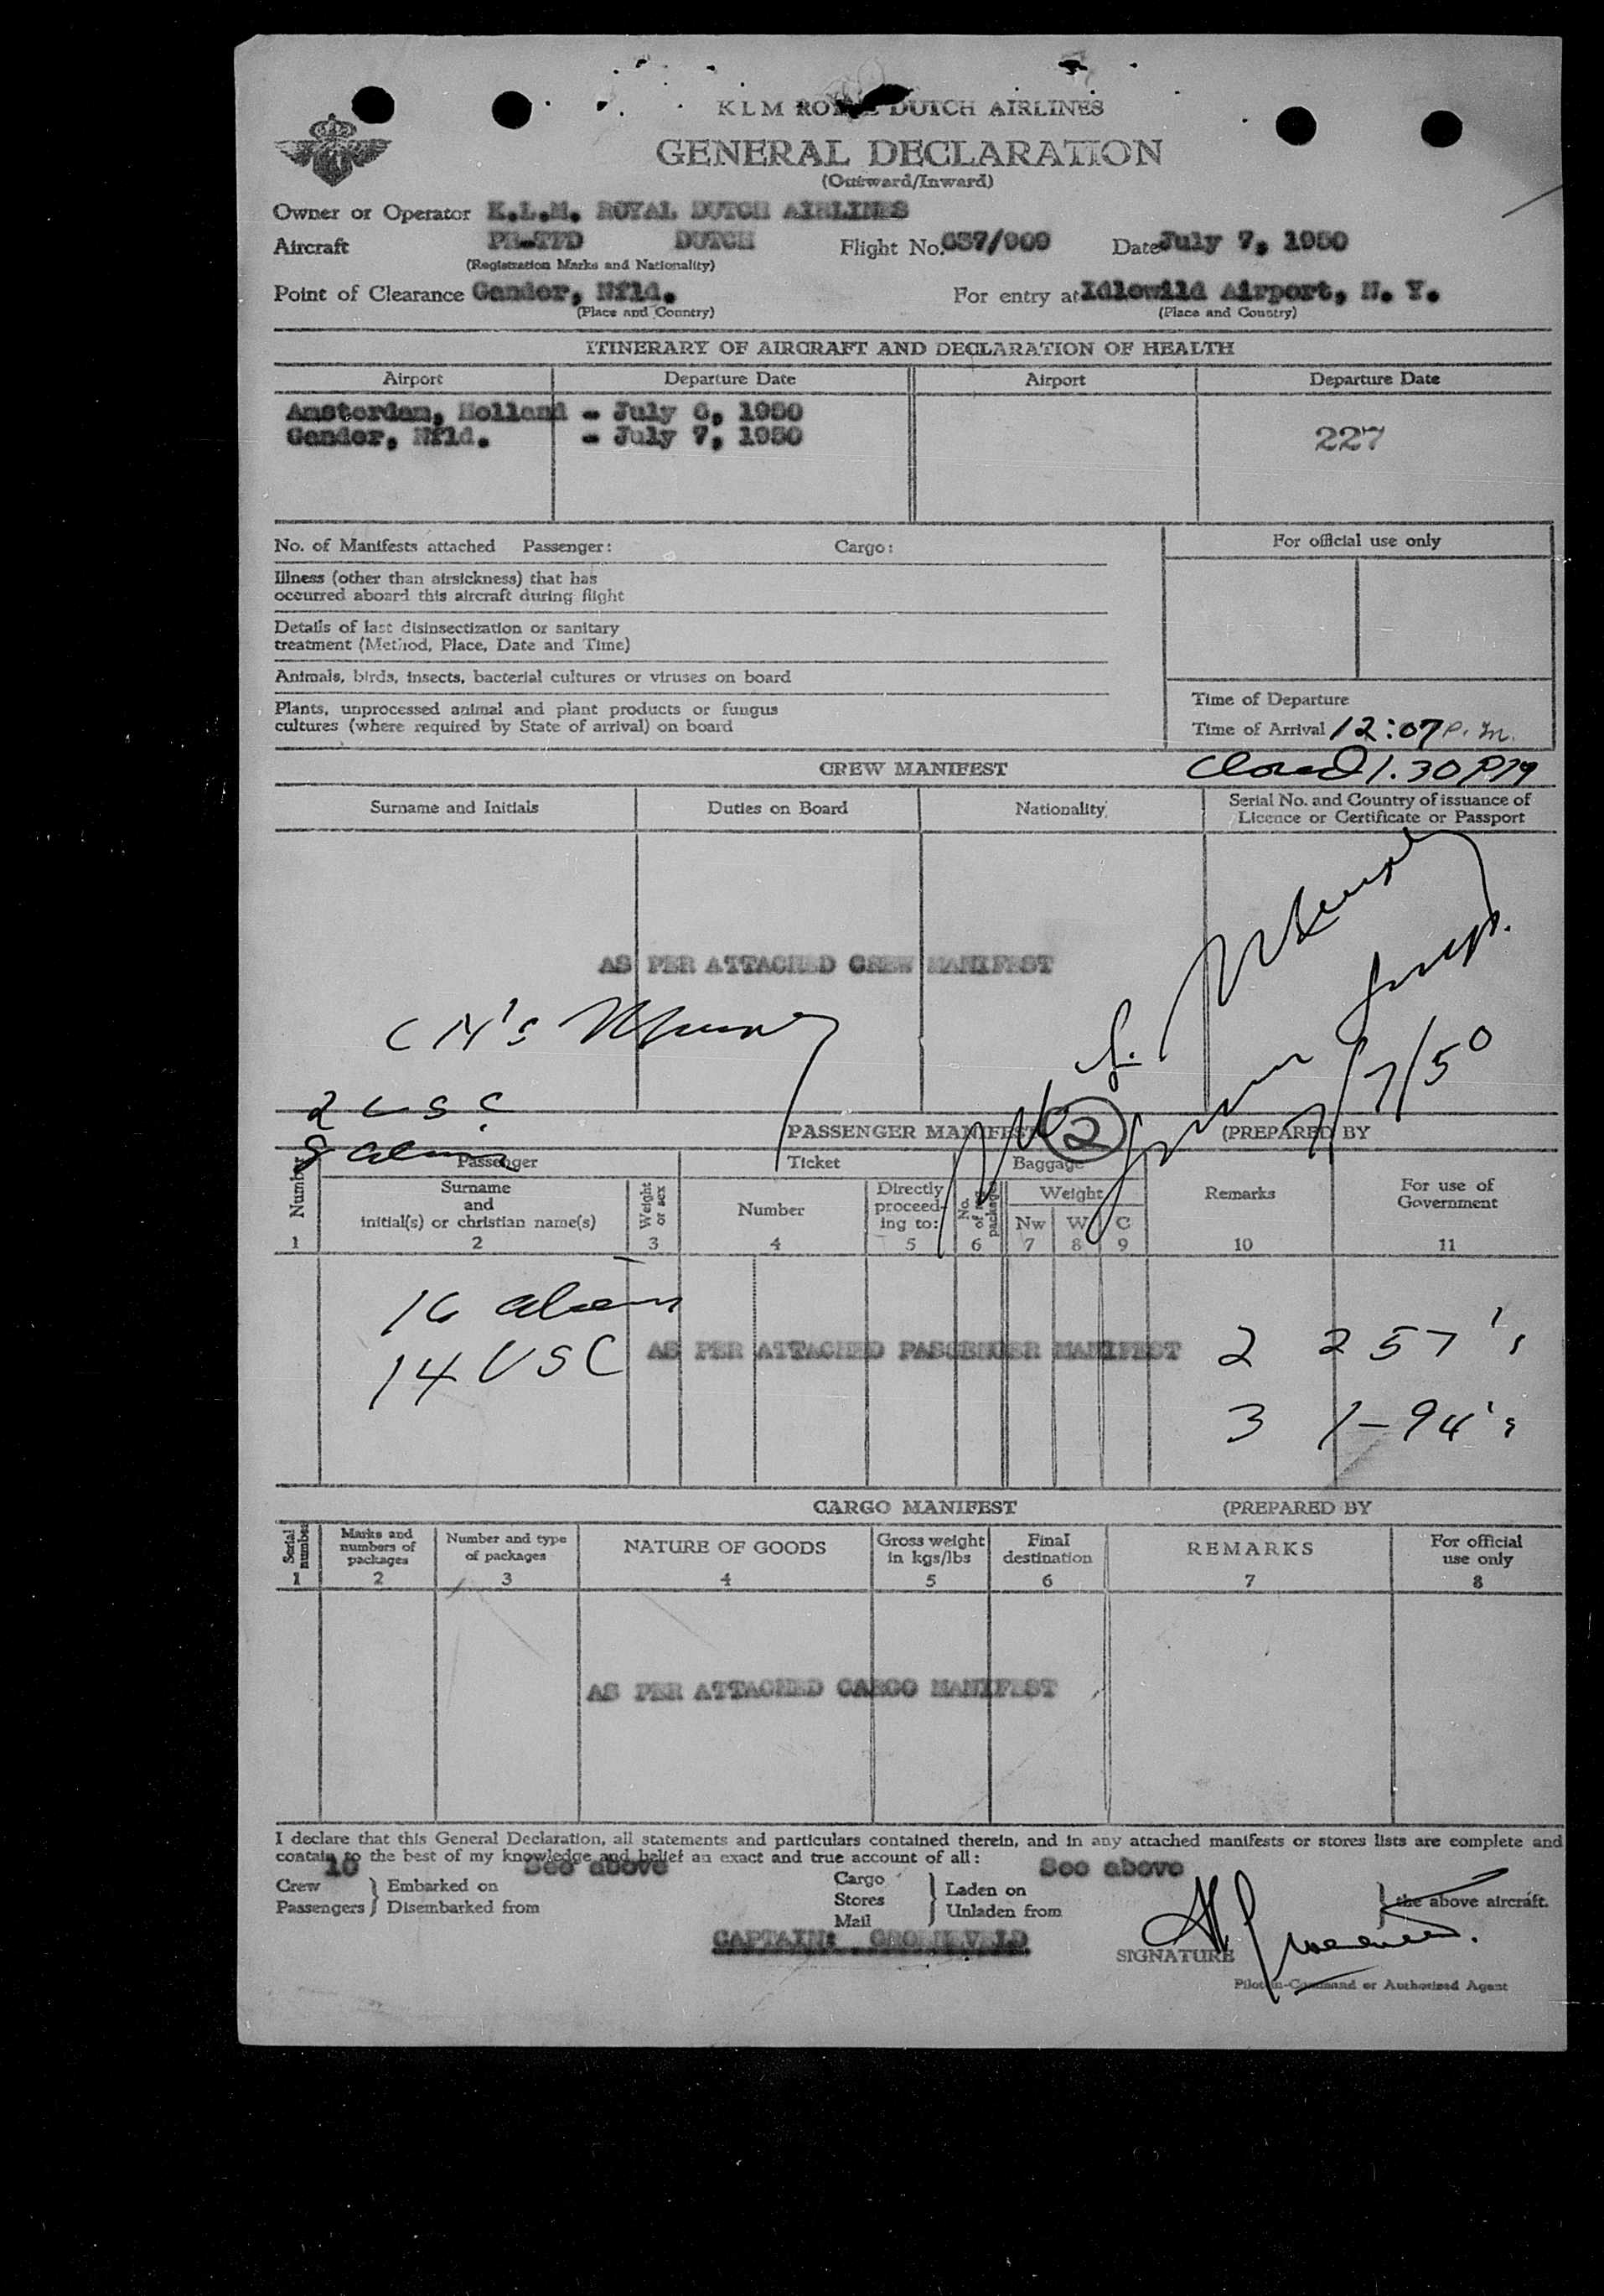 KLM ROYAL DUTCH AIRLINES
GENERAL DECLARATION
(Outward/Inward)
Owner or Operator K.L.M. ROYAL DUTCH AIRLINES
Aircraft PH-TFD DUTCH Flight No. 637/909 Date July 7, 1950
(Registration Marks and Nationality)
Point of Clearance Gander, Nfld. For entry at Idlewild Airport, N. Y.
(Place and Country) (Place and Country)
ITINERARY OF AIRCRAFT AND DECLARATION OF HEALTH
Airport Departure Date Airport Departure Date
Amsterdam, Holland - July 6, 1950
Gander, Nfld. - July 7, 1950 227
No. of Manifests attached Passenger: Cargo: For official use only
Illness (other than airsickness) that has
occurred aboard this aircraft during flight
Details of last disinsectization or sanitary
treatment (Method, Place, Date and Time)
Animals, birds, insects, bacterial cultures or viruses on board
Plants, unprocessed animal and plant products or fungus
cultures (where required by State of arrival) on board
Time of Departure
Time of Arrival 12:07 P.m.
CREW MANIFEST Closed 1.30 PM
Surname and Initials Duties on Board Nationality Serial No. and Country of issuance of
Licence or Certificate or Passport
AS PER ATTACHED CREW MANIFEST
7/7/50
2 USC
8 alien
2
PASSENGER MANIFEST (PREPARED BY
Number Passenger Ticket Baggage
Surname
and
initial(s) or christian name(s)
Weight or sex
Number
Directly
proceed-
ing to:
No. of packages
Weight
Nw W C
Remarks
For use of
Government
1 2 3 4 5 6 7 8 9 10 11
16 alien
14 USC AS PER ATTACHED PASSENGER MANIFEST 2 257's
3 1-94's
CARGO MANIFEST (PREPARED BY
Serial number
Marks and
numbers of
packages
Number and type
of packages
NATURE OF GOODS
Gross weight
in kgs/lbs
Final
destination
REMARKS
For official
use only
1 2 3 4 5 6 7 8
AS PER ATTACHED CARGO MANIFEST
I declare that this General Declaration, all statements and particulars contained therein, and in any attached manifests or stores lists are complete and
contain to the best of my knowledge and belief an exact and true account of all:
10 See above See above
Crew Embarked on Cargo Laden on
Passengers Disembarked from Stores Unladen from the above aircraft.
Mail
CAPTAIN: GROENEVELD
SIGNATURE
Pilot-in-Command or Authorized Agent